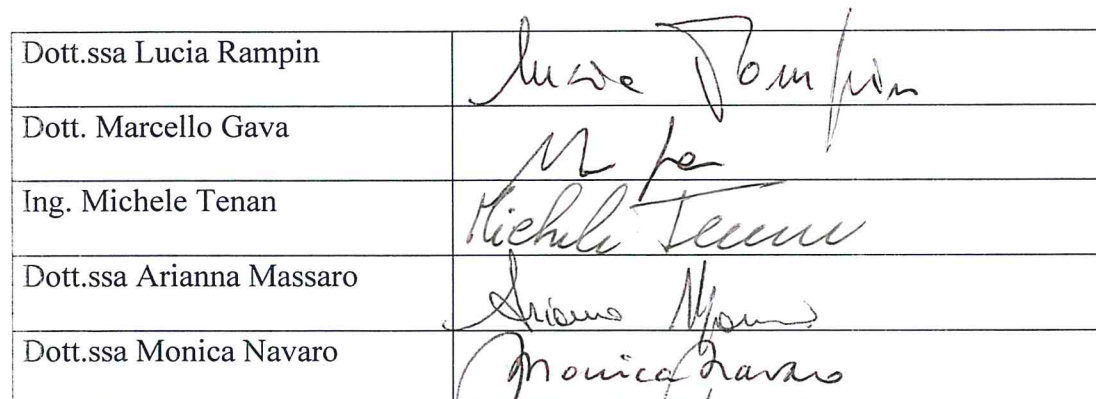 Dott.ssa Lucia Rampin Lucia Rampin
Dott. Marcello Gava
Ing. Michele Tenan Michele Tenan
Dott.ssa Arianna Massaro Arianna
Dott.ssa Monica Navaro Monica Navaro